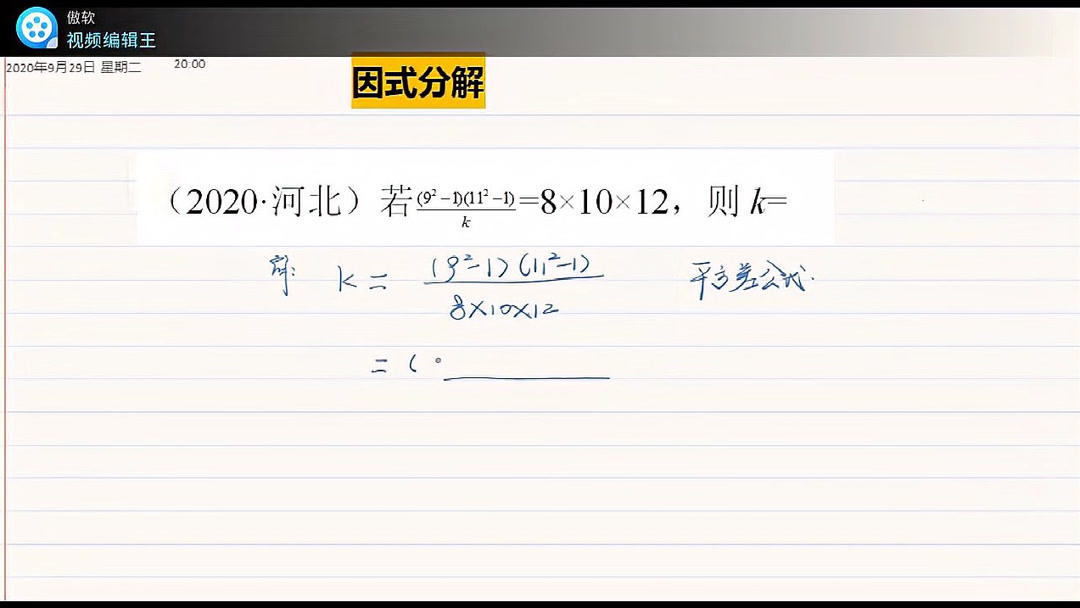 傲软
视频编辑王
2020年9月29日 星期二 20:00
因式分解
（2020·河北）若\frac{(9²−1)(11²−1)}{k}=8×10×12，则 k=
解: k = \frac{(9²−1)(11²−1)}{8×10×12} 平方差公式.
= (